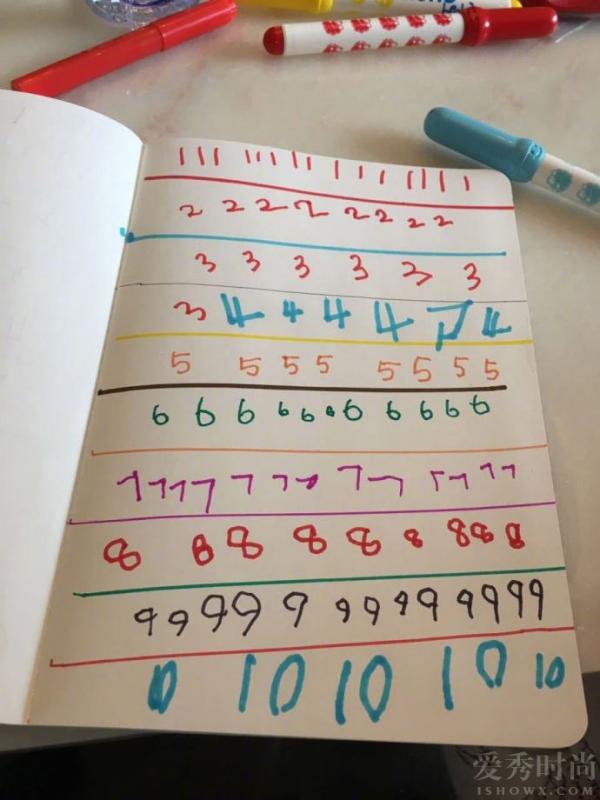 1 1 1 1 1 1 1 1 1 1 1 1 1 1 1
2 2 2 2 2 2 2 2
3 3 3 3 3 3
3 4 4 4 4 4 4
5 5 5 5 5 5 5 5
6 6 6 6 6 6 6 6 6 6 6
7 7 7 7 7 7 7 7 7 7 7 7 7
8 8 8 8 8 8 8 8 8
9 9 9 9 9 9 9 9 9 9 9 9 9
10 10 10 10 10
爱秀时尚
ISHOWX.COM